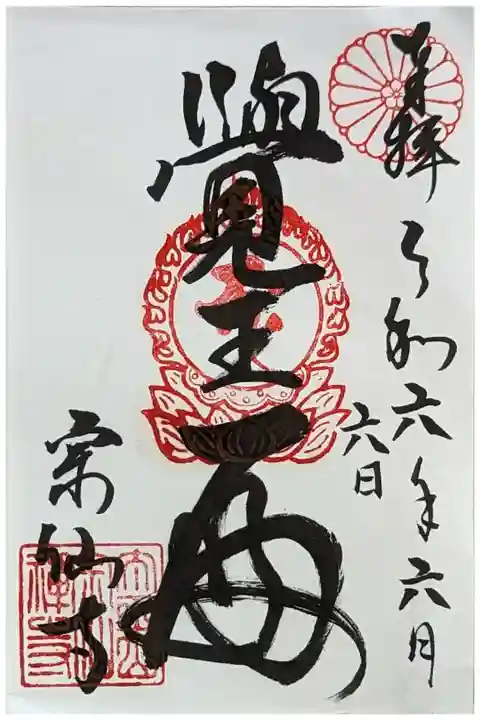 奉拝
令和六年六月
六日
覺王
宗仙寺